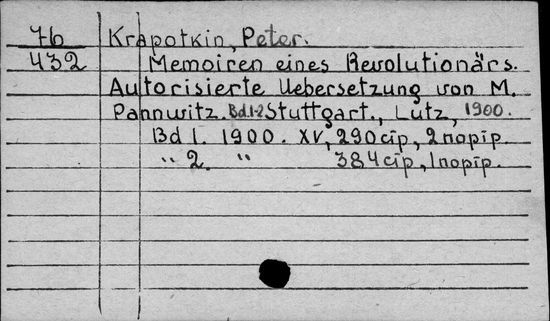 76 Krapotkin, Peter.
432 Memoiren eines Revolutionärs.
Autorisierte Uebersetzung von M.
Pannwitz. Bd.1-2 Stuttgart., Lutz, 1900.
Bd 1. 1900. XV, 290 cip, 2 nopip.
" 2. " 384 cip, 1 nopip.